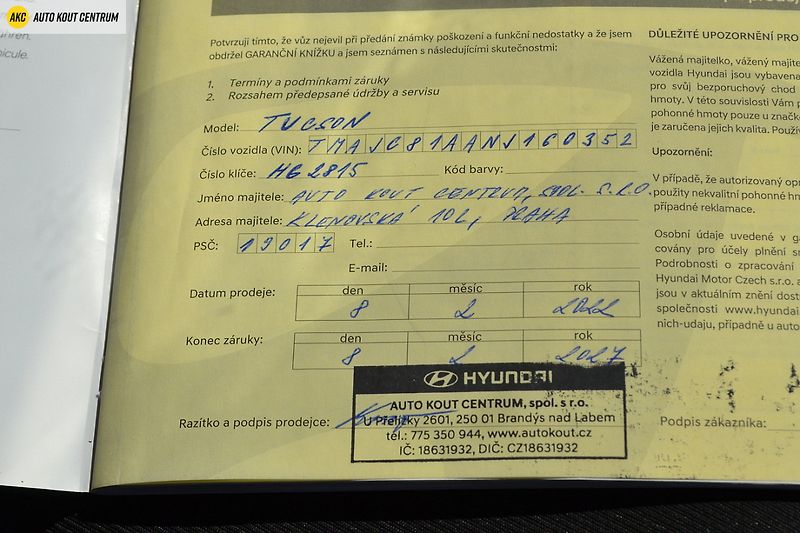 AKC AUTO KOUT CENTRUM
Potvrzuji tímto, že vůz nejevil při předání známky poškození a funkční nedostatky a že jsem
obdržel GARANČNÍ KNÍŽKU a jsem seznámen s následujícími skutečnostmi:
1. Termíny a podmínkami záruky
2. Rozsahem předepsané údržby a servisu
Model: TUCSON
Číslo vozidla (VIN): TMAJC81AANJ160352
Číslo klíče: HG2815 Kód barvy:
Jméno majitele: AUTO KOUT CENTRUM, SPOL. S.R.O.
Adresa majitele: KLENOVSKÁ 102, PRAHA
PSČ: 19017 Tel.:
E-mail:
Datum prodeje: den měsíc rok
8 2 2022
Konec záruky: den měsíc rok
8 2 2027
Razítko a podpis prodejce:
HYUNDAI
AUTO KOUT CENTRUM, spol. s r.o.
U Přeložky 2601, 250 01 Brandýs nad Labem
tel.: 775 350 944, www.autokout.cz
IČ: 18631932, DIČ: CZ18631932
Podpis zákazníka:
DŮLEŽITÉ UPOZORNĚNÍ PRO
Vážená majitelko, vážený majite
vozidla Hyundai jsou vybavena
pro svůj bezporuchový chod
hmoty. V této souvislosti Vám
pohonné hmoty pouze u značk
je zaručena jejich kvalita. Použí
Upozornění:
V případě, že autorizovaný opr
použity nekvalitní pohonné hm
případné reklamace.
Osobní údaje uvedené v ga
covány pro účely plnění sm
Podrobnosti o zpracování
Hyundai Motor Czech s.r.o. a
jsou v aktuálním znění dost
společnosti www.hyundai.
nich-udaju, případně u auto